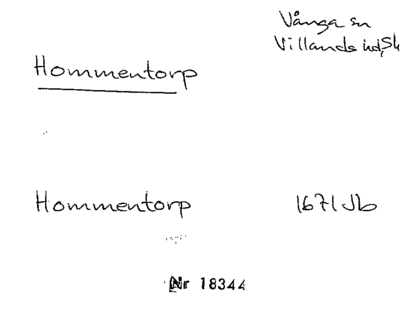 Vånga sn
Villands hd, Sk
Hommentorp
Hommentorp 1671 Jb
Nr 18344